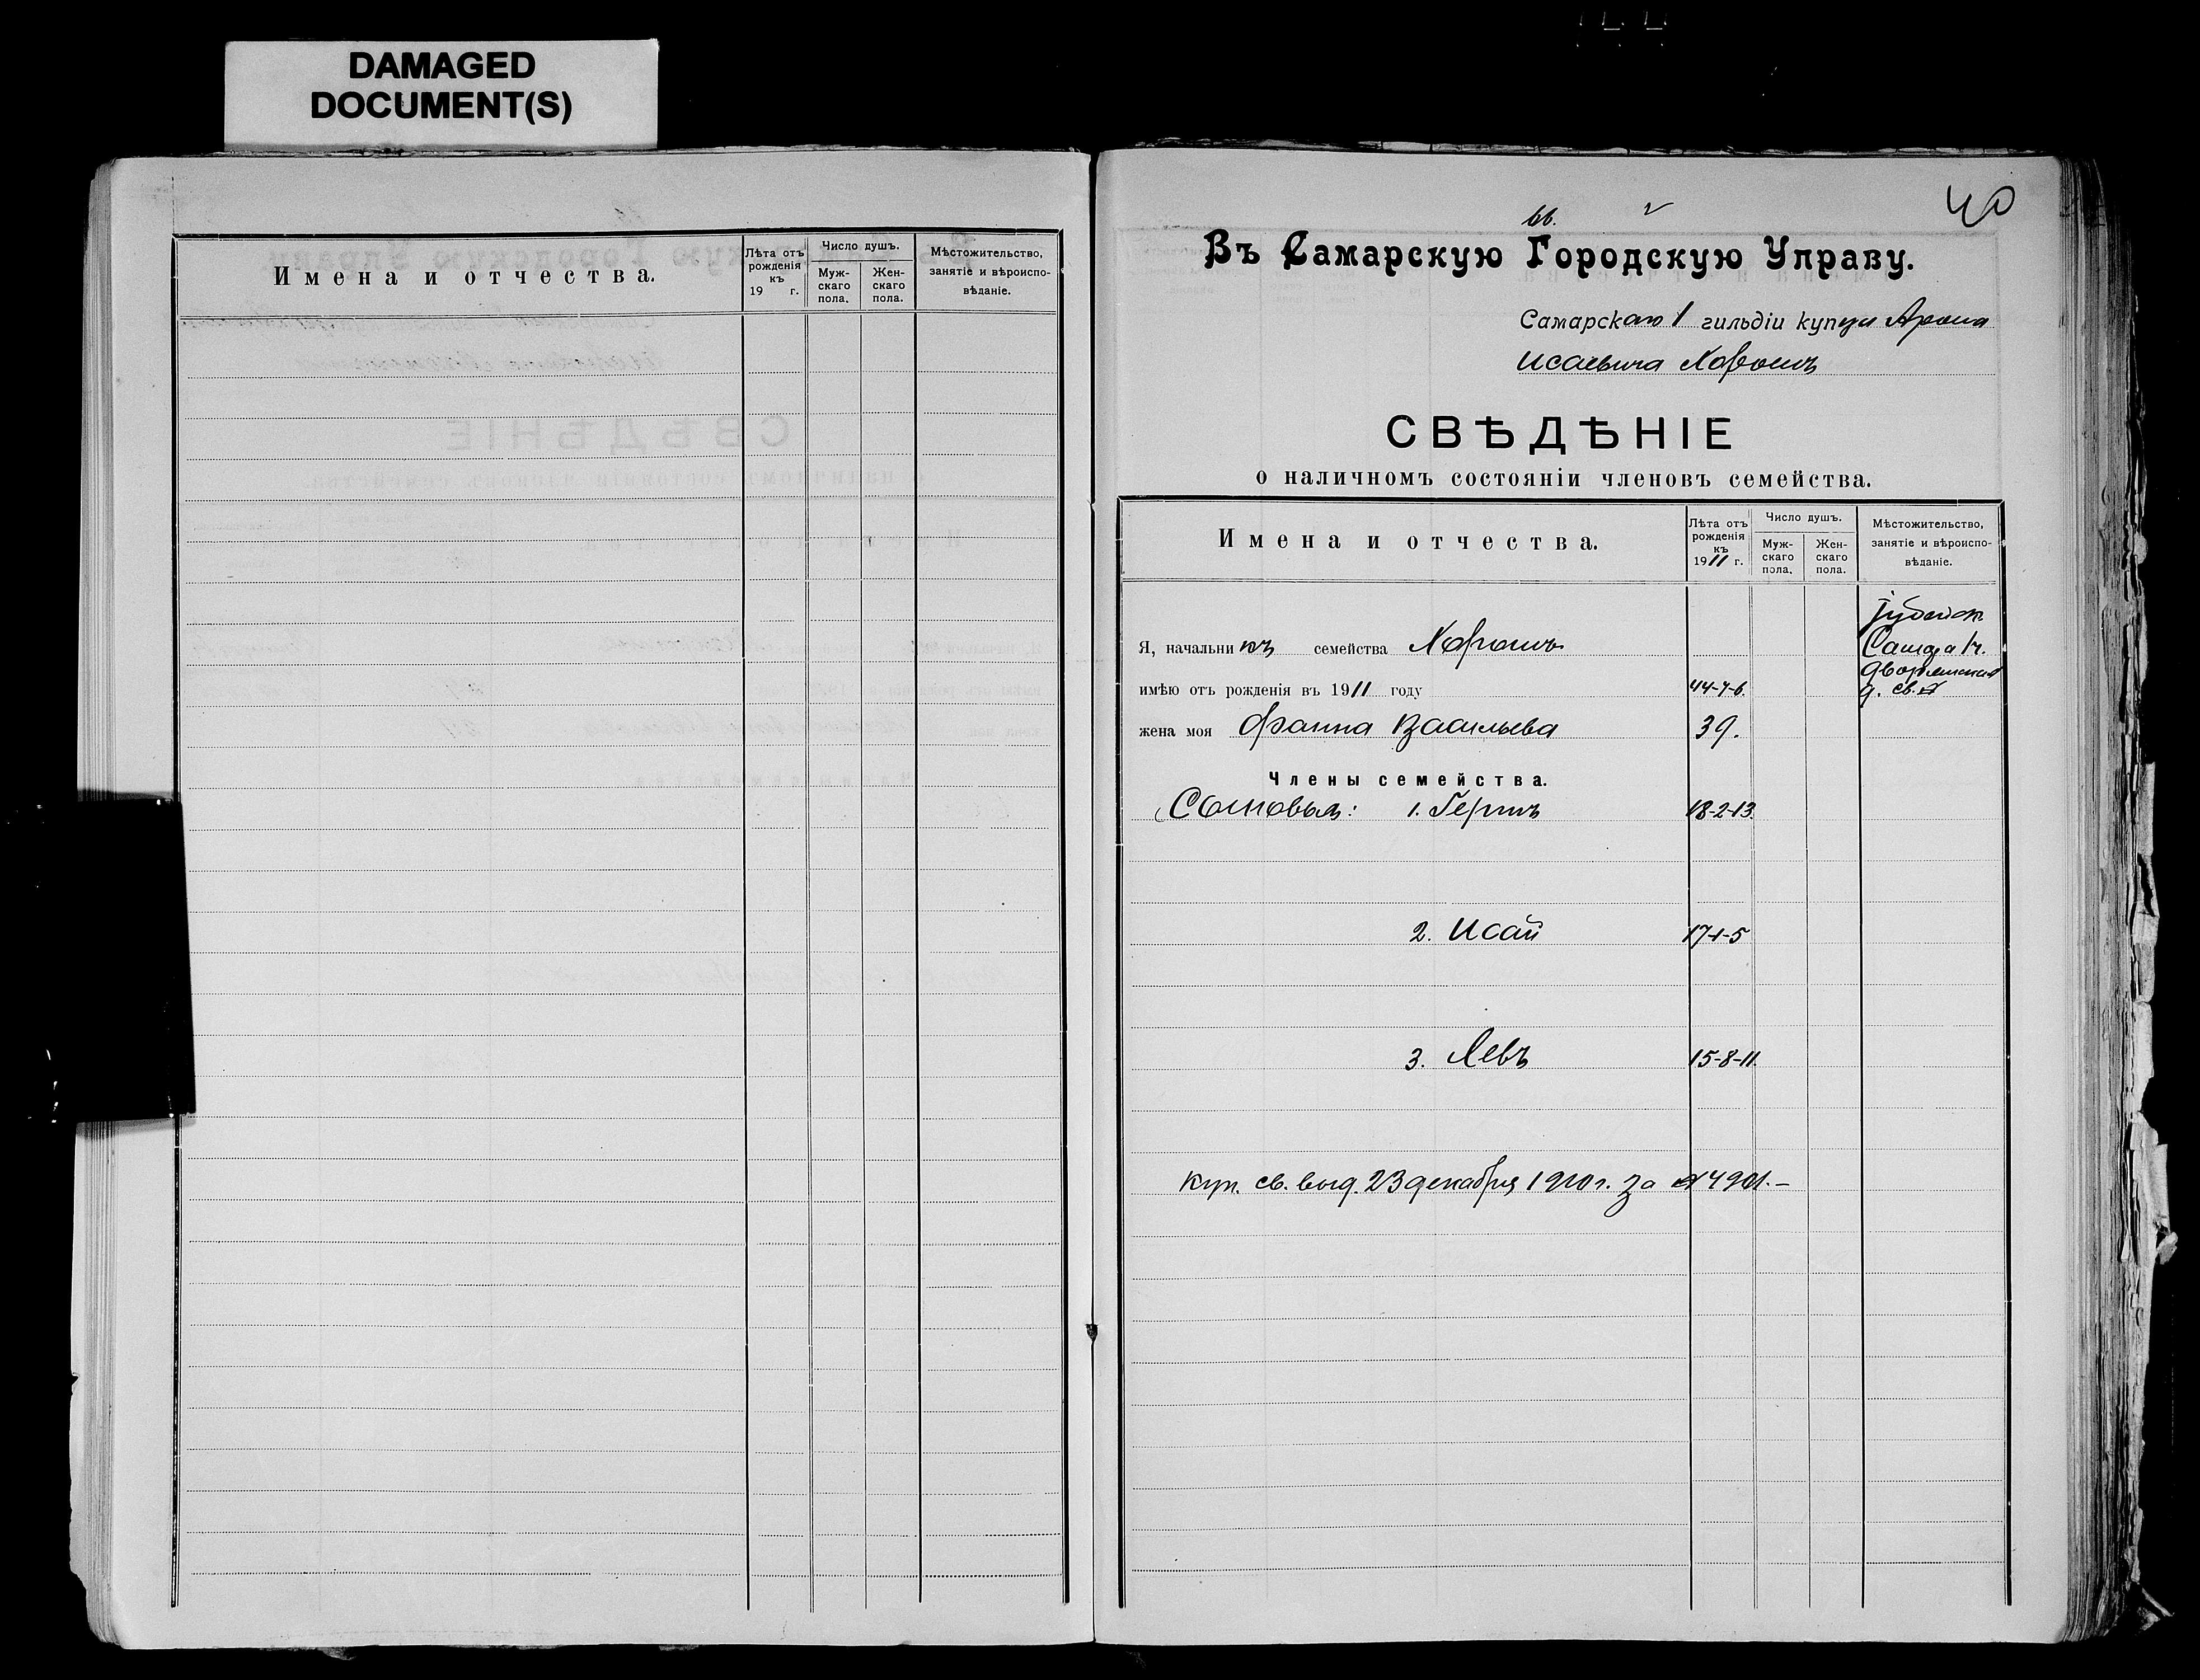 DAMAGED
DOCUMENT(S)
Имена и отчества.
Лѣта отъ рожденія къ 19 г.
Число душъ.
Мужскаго пола.
Женскаго пола.
Мѣстожительство, занятіе и вѣроисповѣданіе.
40
66.
Въ Самарскую Городскую Управу.
Самарскаго 1 гильдіи купца Арона
Исаевича Хорошъ
СВѢДѢНІЕ
о наличномъ состояніи членовъ семейства.
Имена и отчества.
Лѣта отъ рожденія къ 1911 г.
Число душъ.
Мужскаго пола.
Женскаго пола.
Мѣстожительство, занятіе и вѣроисповѣданіе.
Іудейск.
Я, начальникъ семейства Хорошъ
Самара 1ч.
Дворянская
имѣю отъ рожденія въ 1911 году 44-7-6.
д. св. №
жена моя Фанна Васильева 39.
Члены семейства.
Сыновья: 1. Гершъ 18-2-13.
2. Исай 17-1-5
3. Левъ 15-8-11.
Куп. св. выд. 23 декабря 1910 г. за № 4901.-